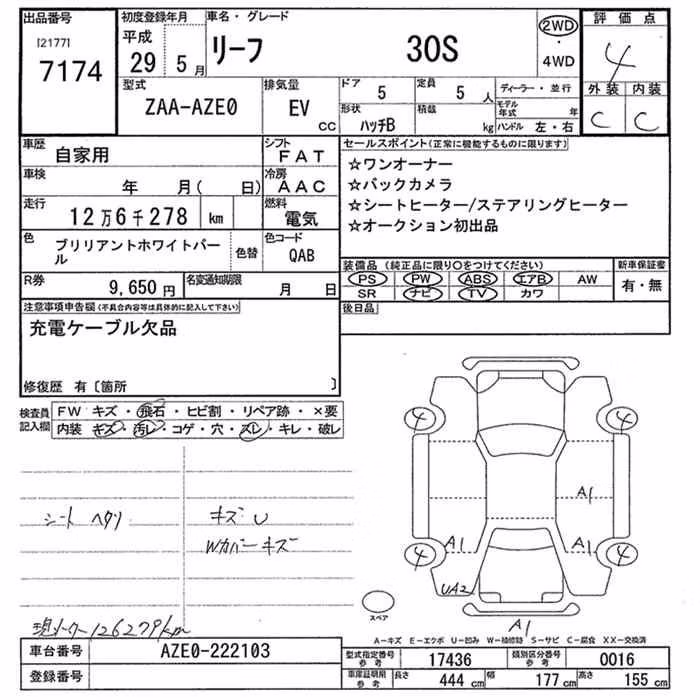 出品番号
[2177]
7174
初度登録年月
平成
29 5月
車名・グレード
リーフ 30S
2WD
・
4WD
評価点
4
外装 内装
C C
型式
ZAA-AZE0
排気量
EV
CC
ドア
5
定員
5人
形状
ハッチB
積載
kg
ディーラー・並行
モデル年式 年
ハンドル 左・右
車歴
自家用
シフト
FAT
車検
年 月( 日)
冷房
AAC
走行
12万6千278 km
燃料
電気
色
ブリリアントホワイトパール
色替
色コード
QAB
R券
9,650円
名変通知期限
月 日
セールスポイント(正常に機能するものに限ります)
☆ワンオーナー
☆バックカメラ
☆シートヒーター/ステアリングヒーター
☆オークション初出品
装備品(純正品に限り○をつけてください)
PS PW ABS エアB AW
SR ナビ TV カワ
新車保証書
有・無
後日品
注意事項申告欄(不具合内容等は具体的に記入して下さい)
充電ケーブル欠品
修復歴 有〔箇所 〕
検査員記入欄
FW キズ・飛石・ヒビ割・リペア跡・×要
内装 キズ・汚レ・コゲ・穴・スレ・キレ・破レ
シート ヘタリ
キズ U
Wカバーキズ
現メーター126279km
4 4
A1
A1 A1
4 4
UA2
スペア
A1
A-キズ E-エクボ U-凹み W-補修跡 S-サビ C-腐食 XX-交換済
車台番号
AZE0-222103
登録番号
型式指定番号 参考
17436
類別区分番号 参考
0016
車庫証明用 参考
長さ 444 cm 幅 177 cm 高さ 155 cm